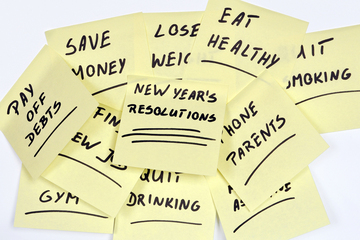 SAVE
MONEY
LOSE
WEIG
EAT
HEALTHY
UIT
MOKING
PAY
OFF
DEBTS
NEW YEAR'S
RESOLUTIONS
HONE
PARENTS
FIN
EW J
GYM
QUIT
DRINKING